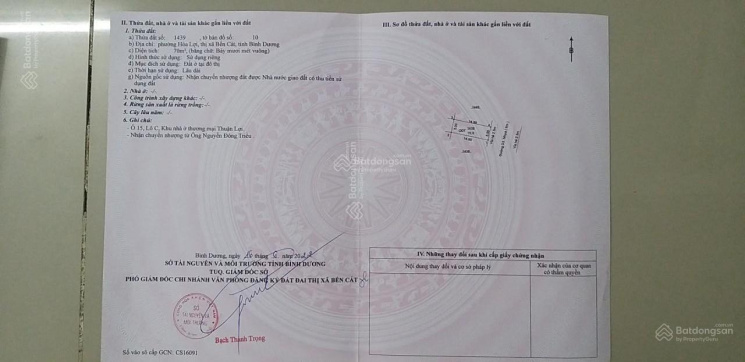 II. Thửa đất, nhà ở và tài sản khác gắn liền với đất
1. Thửa đất:
a) Thửa đất số: 1439 , tờ bản đồ số: 10
b) Địa chỉ: phường Hòa Lợi, thị xã Bến Cát, tỉnh Bình Dương
c) Diện tích: 70m², (bằng chữ: Bảy mươi mét vuông)
d) Hình thức sử dụng: Sử dụng riêng
đ) Mục đích sử dụng: Đất ở tại đô thị
e) Thời hạn sử dụng: Lâu dài
g) Nguồn gốc sử dụng: Nhận chuyển nhượng đất được Nhà nước giao đất có thu tiền sử
dụng đất
2. Nhà ở: -/-
3. Công trình xây dựng khác: -/-
4. Rừng sản xuất là rừng trồng: -/-
5. Cây lâu năm: -/-
6. Ghi chú:
- Ô 15, Lô C, Khu nhà ở thương mại Thuận Lợi.
- Nhận chuyển nhượng từ Ông Nguyễn Đông Triều
Bình Dương, ngày tháng năm
SỞ TÀI NGUYÊN VÀ MÔI TRƯỜNG TỈNH BÌNH DƯƠNG
TUQ. GIÁM ĐỐC SỞ
PHÓ GIÁM ĐỐC CHI NHÁNH VĂN PHÒNG ĐĂNG KÝ ĐẤT ĐAI THỊ XÃ BẾN CÁT
SỞ
TÀI NGUYÊN VÀ
MÔI TRƯỜNG
Bạch Thanh Trọng
Số vào sổ cấp GCN: CS16091
III. Sơ đồ thửa đất, nhà ở và tài sản khác gắn liền với đất
IV. Những thay đổi sau khi cấp giấy chứng nhận
Nội dung thay đổi và cơ sở pháp lý
Xác nhận của cơ quan
có thẩm quyền
Batdongsan
by PropertyGuru
Batdongsan
by PropertyGuru
Batdongsan
by PropertyGuru
Batdongsan
by PropertyGuru
Batdongsan
by PropertyGuru